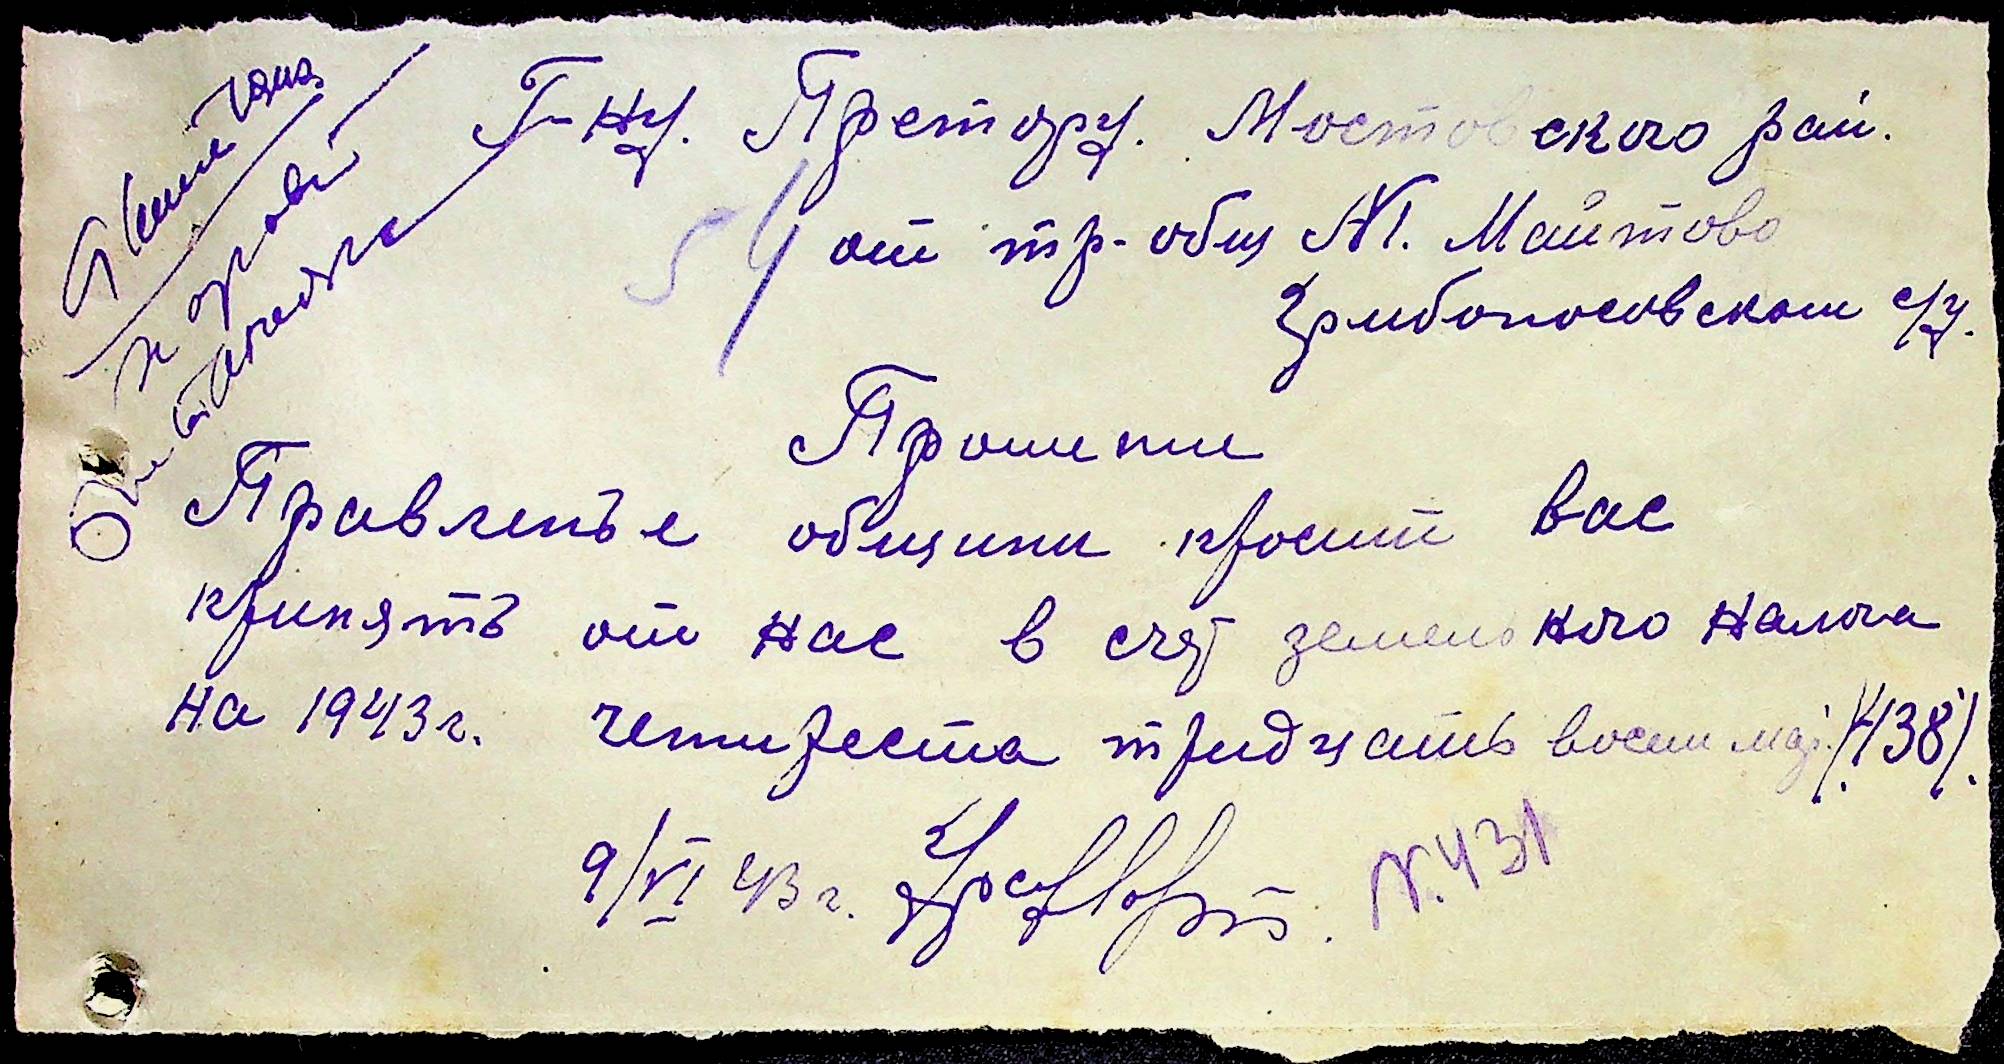 Г-ну. Претору. Мостовского рай.
54
от тр. общ №1. Маитово
Грибоносовском с/у.
Прошени
Правленье общини просит вас
принять от нас в счят земельного налога
на 1943 г. четиреста тридцать восем мар. /438/.
9/VI 43 г.
N. 431